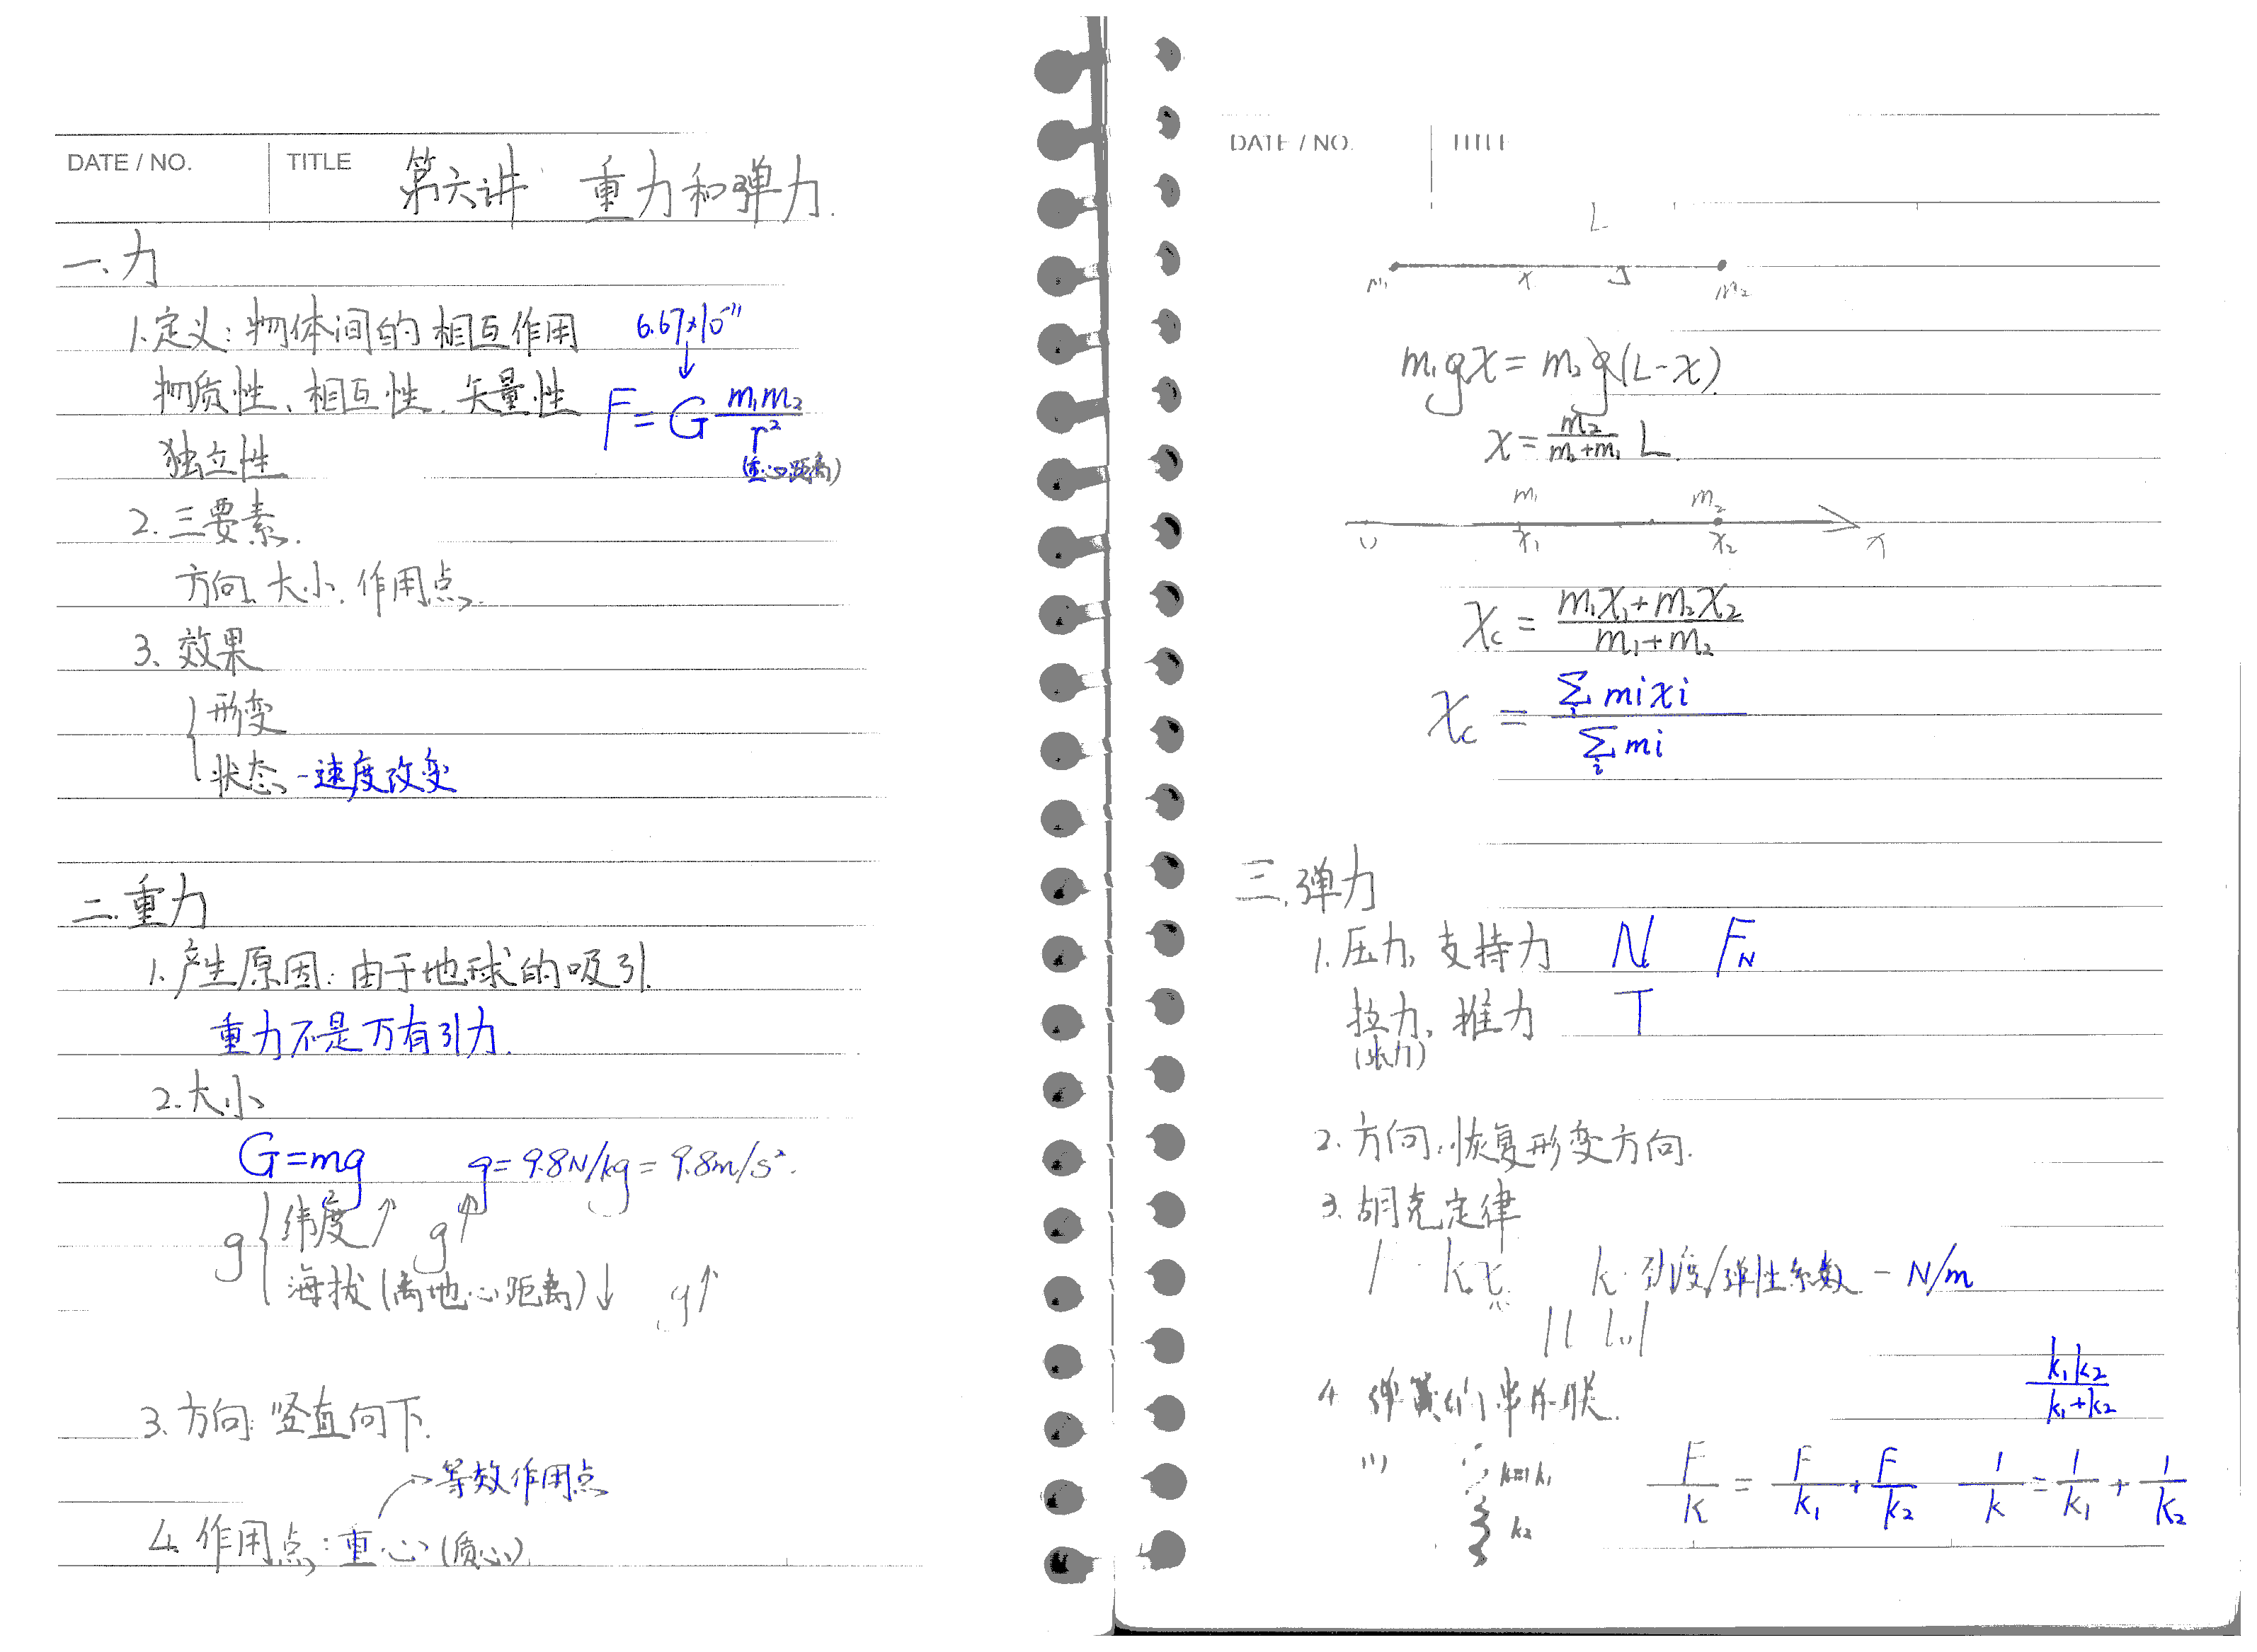 DATE / NO. TITLE 第六讲 重力和弹力.
一.力
1.定义:物体间的相互作用
6.67×10⁻¹¹
↓
物质性、相互性、矢量性
独立性
F=G m₁m₂/r²
(重心距离)
2.三要素.
方向、大小、作用点.
3.效果
形变
状态-速度改变
二.重力
1.产生原因:由于地球的吸引.
重力不是万有引力.
2.大小
G=mg g=9.8N/kg=9.8m/s².
g { 纬度↑ g↑
海拔(离地心距离)↓ g↑
3.方向:竖直向下.
→等效作用点
4.作用点:重心(质心)
DATE / NO. TITLE
L
m₁ x m₂
m₁gx=m₂g(L-x)
x=m₂/(m₂+m₁) L.
m₁ m₂
0 x₁ x₂ x
x_c=(m₁x₁+m₂x₂)/(m₁+m₂)
x_c=∑mixi/∑mi
三.弹力
1.压力,支持力 N F_N
拉力,推力 T
(张力)
2.方向:恢复形变方向.
3.胡克定律
kx k:劲度/弹性系数-N/m
4 弹簧的串并联.
k₁k₂/(k₁+k₂)
(1) k₁
k₂
F/k=F/k₁+F/k₂ 1/k=1/k₁+1/k₂